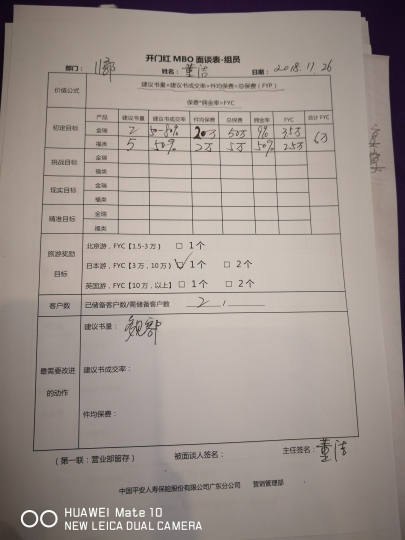 开门红 MBO 面谈表-组员
部门： 姓名：董洁 日期：2018.11.26
价值公式 建议书量×建议书成交率×件均保费=总保费（FYP）
保费*佣金率=FYC
产品 建议书量 建议书成交率 件均保费 总保费 佣金率 FYC 合计 FYC
初定目标 金瑞 2 50-80% 20万 50万 9% 3.5万 6万
福类 5 50% 2万 5万 50% 2.5万
挑战目标 金瑞
福类
现实目标 金瑞
福类
精准目标 金瑞
福类
旅游奖励目标 北京游，FYC【1.5-3 万】 □ 1个
日本游，FYC【3 万，10 万】 ☑ 1个 □ 2个
英国游，FYC【10 万，以上】 □ 1个 □ 2个
客户数 已储备客户数/需储备客户数 2
最需要改进的动作 建议书量：
建议书成交率：
件均保费：
（第一联：营业部留存） 被面谈人签名： 主任签名：董洁
中国平安人寿保险股份有限公司广东分公司 营销管理部
HUAWEI Mate 10
NEW LEICA DUAL CAMERA